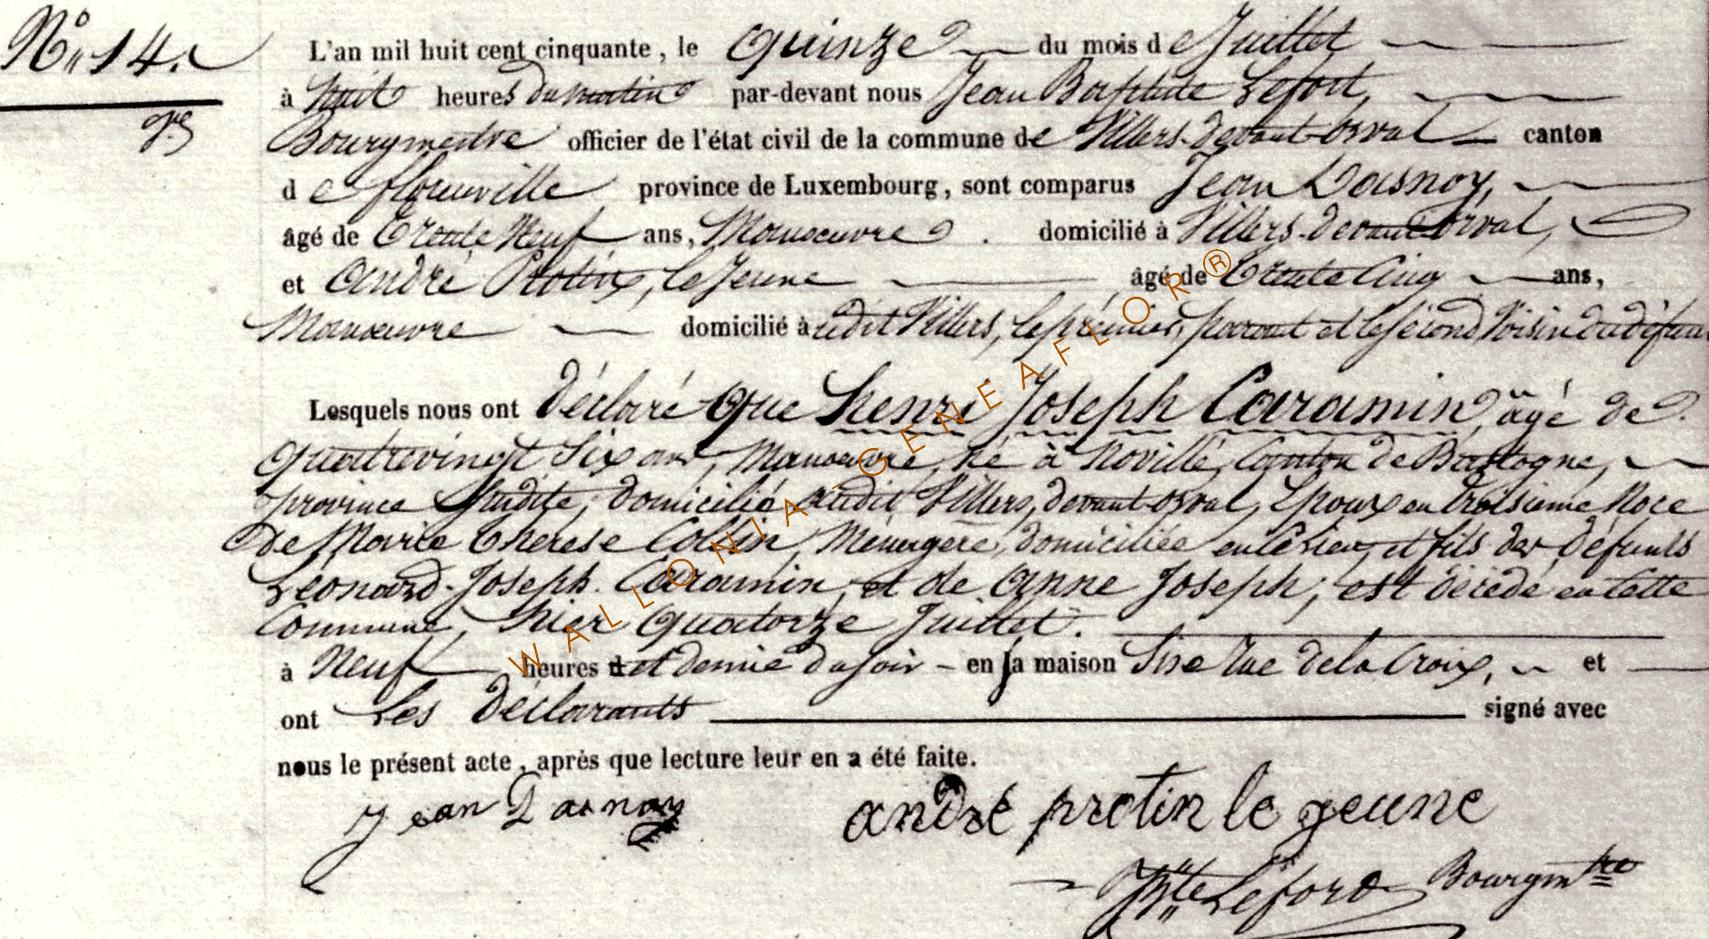 N° 14.
L'an mil huit cent cinquante, le quinze du mois de Juillet
à huit heures du matin par-devant nous Jean Baptiste Lefort,
Bourgmestre officier de l'état civil de la commune de Villers-devant-orval canton
de florenville province de Luxembourg, sont comparus Jean Dasnoy,
âgé de Trente Neuf ans, Manoeuvre. domicilié à Villers-devant Orval,
et André Protin, le Jeune âgé de Trente Cinq ans,
Manoeuvre domicilié à cédit Villers, le prémier, parent et le sécond Voisin du défunt
Lesquels nous ont déclaré que henri Joseph Caramin, âgé de
quatrevingt Six ans, Manoeuvre, né à Noville, Canton de Bastogne,
province Susdite, domicilié audit Villers, devant-orval, Epoux en Troisième Noce
de Marie Thérèse Collin, Ménagère, domiciliée en ce lieu, et fils des défunts
Léonard-Joseph Caramin, et de Anne Joseph; est décédé en Cette
Commune, hier quatorze Juillet.
à Neuf heures et demie du soir - en la maison Sise rue de la Croix, et
ont Les Déclarants signé avec
nous le présent acte, après que lecture leur en a été faite.
Jean Dasnoy andré protin le jeune
JBte Lefort Bourgmtre
WALLONIA-GENEAFLOR®